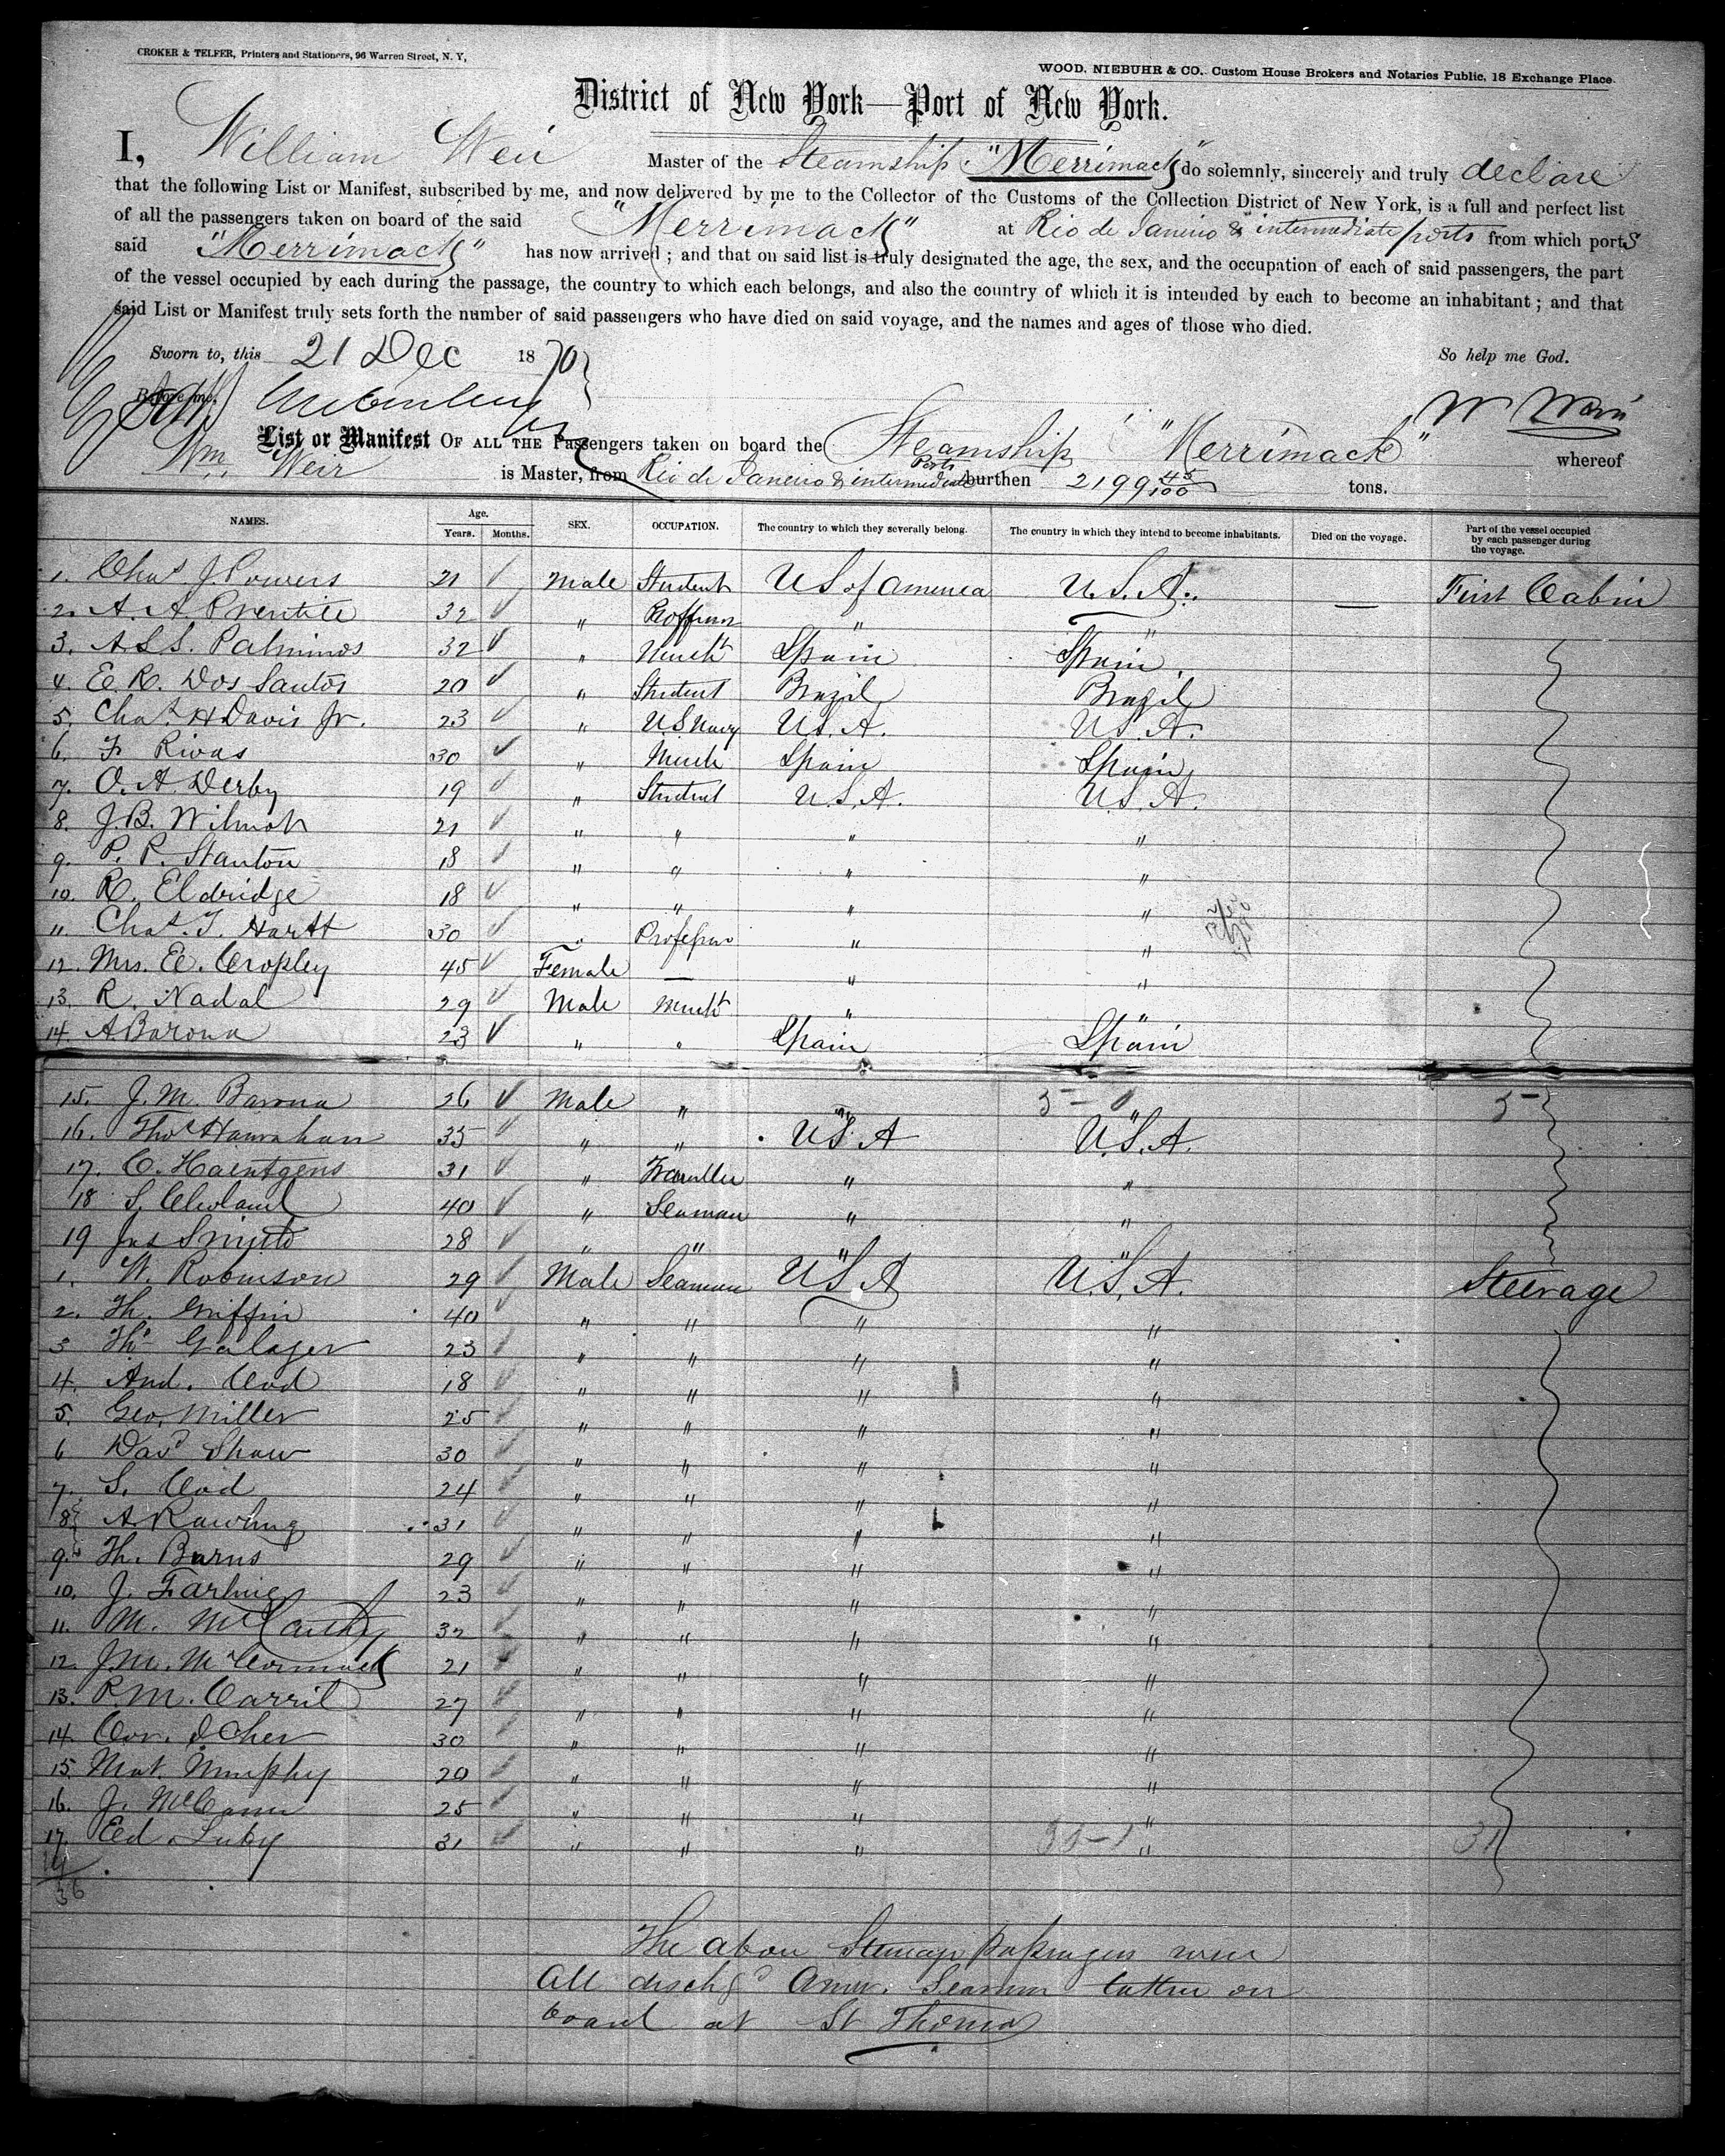 CROKER & TELFER, Printers and Stationers, 96 Warren Street, N. Y,
WOOD, NIEBUHR & CO., Custom House Brokers and Notaries Public, 18 Exchange Place.
District of New York—Port of New York.
I, William Weir Master of the Steamship "Merrimack" do solemnly, sincerely and truly declare
that the following List or Manifest, subscribed by me, and now delivered by me to the Collector of the Customs of the Collection District of New York, is a full and perfect list
of all the passengers taken on board of the said "Merrimack" at Rio de Janeiro & intermediate ports from which ports
said "Merrimack" has now arrived; and that on said list is truly designated the age, the sex, and the occupation of each of said passengers, the part
of the vessel occupied by each during the passage, the country to which each belongs, and also the country of which it is intended by each to become an inhabitant; and that
said List or Manifest truly sets forth the number of said passengers who have died on said voyage, and the names and ages of those who died.
Sworn to, this 21 Dec 1870 So help me God.
Before me, W Weir
List or Manifest OF ALL THE Passengers taken on board the Steamship "Merrimack" whereof
Wm. Weir is Master, from Rio de Janeiro & intermediate Ports burthen 2199 45/100 tons.
NAMES. Age. Years. Months. SEX. OCCUPATION. The country to which they severally belong. The country in which they intend to become inhabitants. Died on the voyage. Part of the vessel occupied by each passenger during the voyage.
1. Chas. J. Powers 21 Male Student US of America U.S.A. — First Cabin
2. A. A Prentice 32 " " "
3. A.S.S. Palminos 32 " Mercht Spain Spain
4. E. R. Dos Santos 20 " Student Brazil Brazil
5. Chas. H Davis Jr. 23 " U.S Navy U.S.A. U.S.A.
6. F Rivas 30 " Merch Spain Spain
7. O. A. Derby 19 " Student U.S.A. U.S.A.
8. J.B. Wilmot 21 " " " "
9. P. P. Stanton 18 " " " "
10. R. Eldridge 18 " " " "
11. Chas. F. Hartt 30 " Professor " "
12. Mrs. E. Cropley 45 Female — " "
13. R. Nadal 29 Male Mercht " "
14. A. Barona 23 " " Spain Spain
15. J. M. Barona 26 Male " " "
16. Thos Hanrahan 35 " " U.S.A U.S.A.
17. C. Haentgens 31 " Traveller " "
18 S. Cleveland 40 " Seaman " "
19 Jas Smyth 28 " " " "
1. W. Robinson 29 Male Seaman U.S.A U.S.A. Steerage
2. Th. Griffin 40 " " " "
3 Ths Galager 23 " " " "
4. And. Cod 18 " " " "
5. Geo. Miller 25 " " " "
6 Davd Shaw 30 " " " "
7. S. Cod 24 " " " "
8. A. Rawling 31 " " " "
9. Th. Burns 29 " " " "
10. J. Farling 23 " " " "
11. M. McCarthy 32 " " " "
12. J.M. McCormack 21 " " " "
13. P.M. Carril 27 " " " "
14. Cor. 30 " " " "
15 Mat. Murphy 20 " " " "
16. J. McCann 25 " " " "
17. Ed. Luby 31 " " " "
19
36
The above Steerage passengers were
All dischgd Amer. Seamen taken on
board at St Thomas